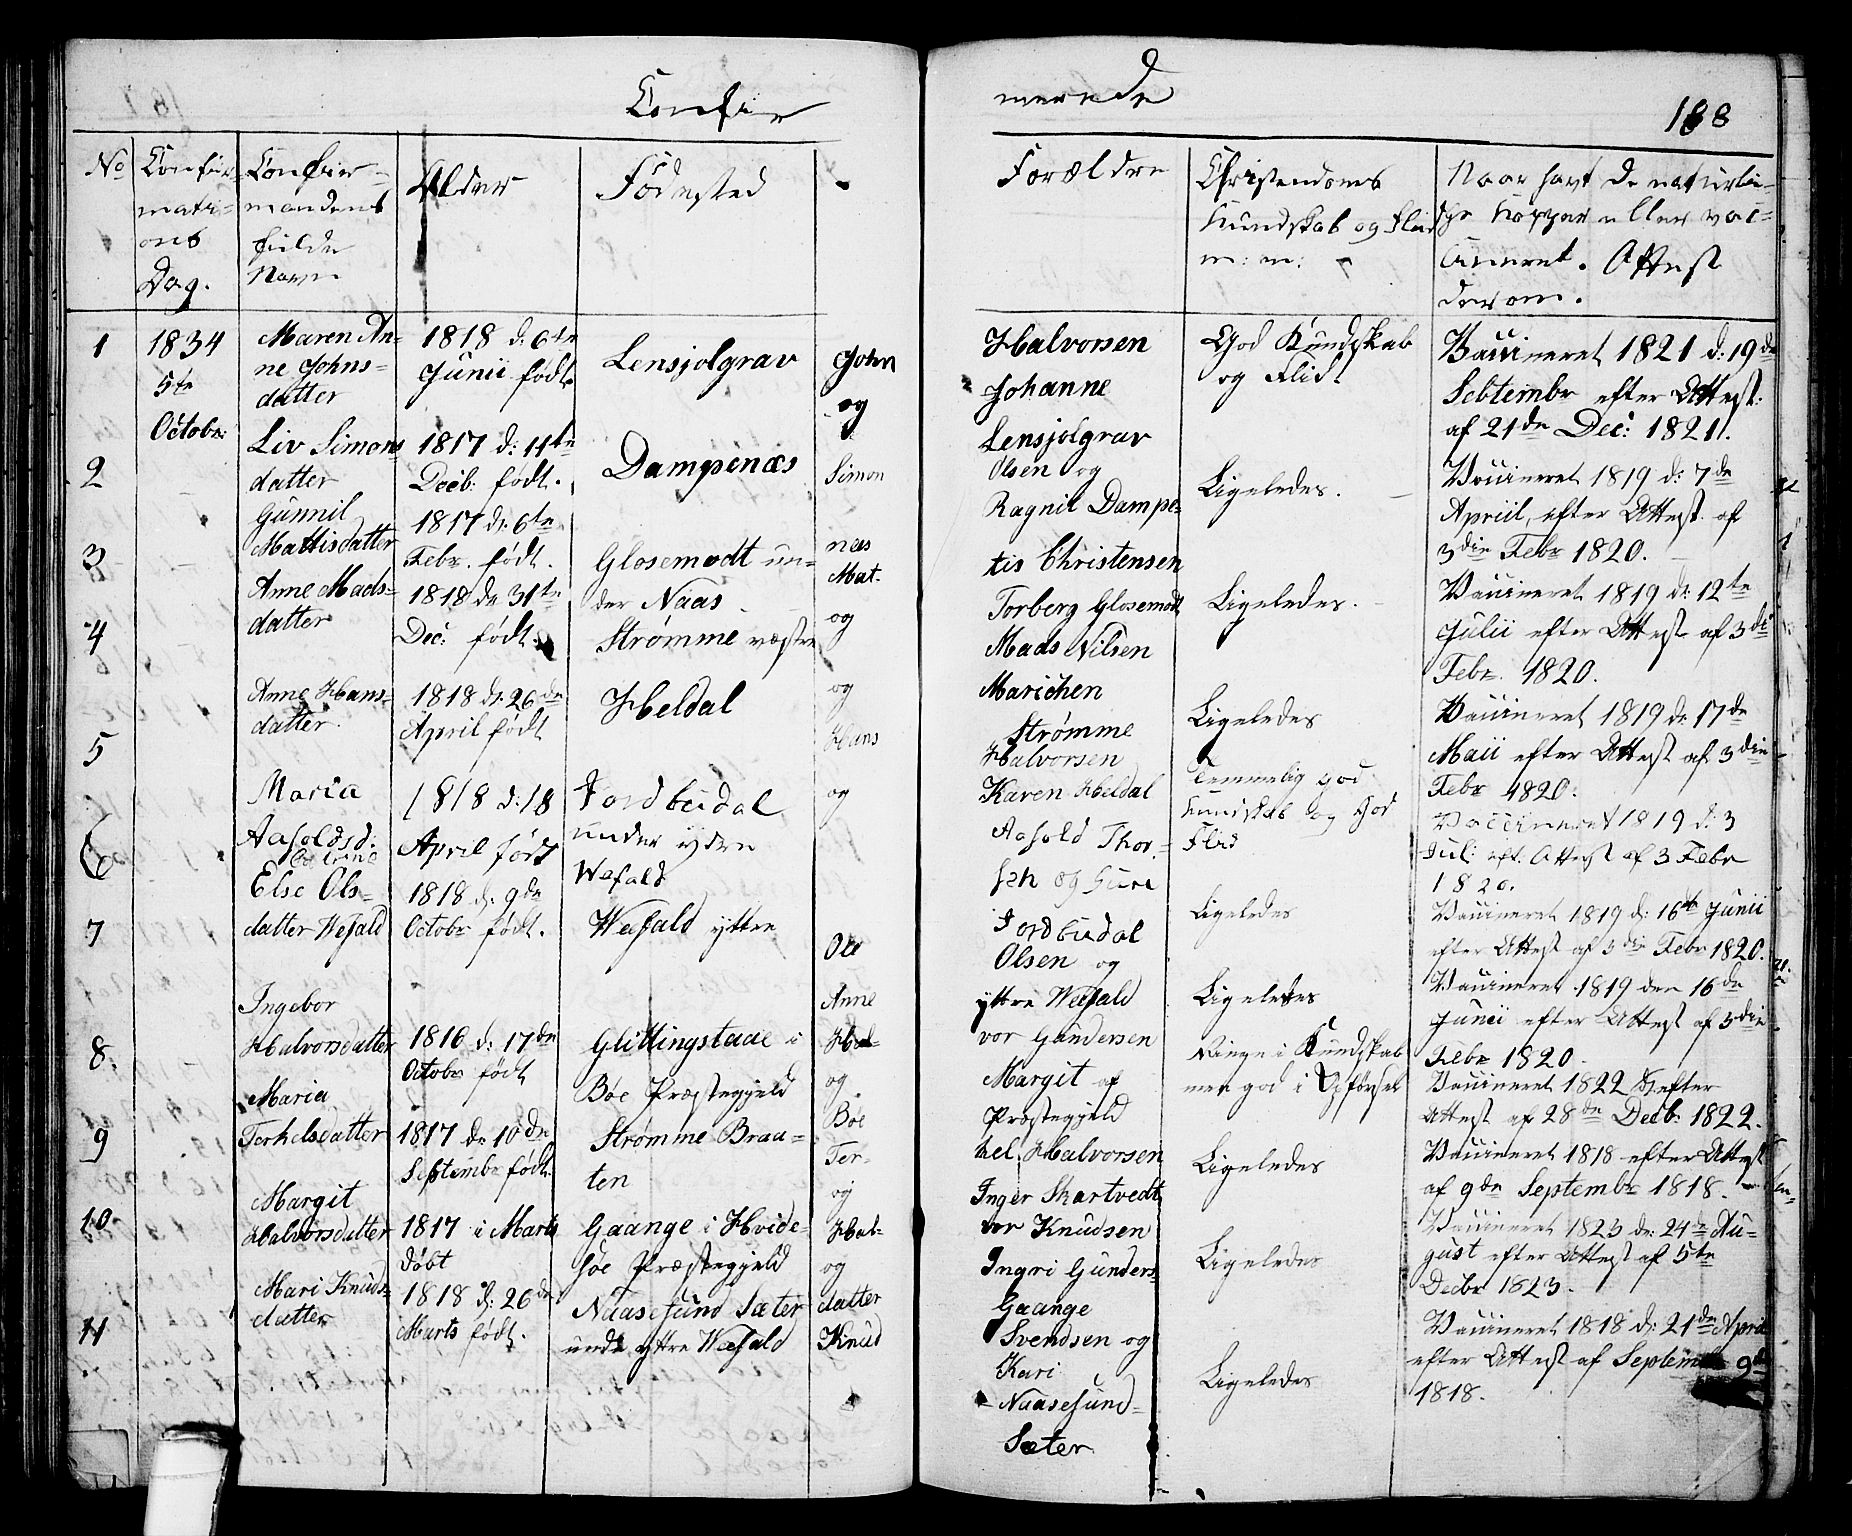 Confir
merede
188
No
Confir-
mati-
ons
Dag.
Confir-
mandens
fulde
Navn
Alder
Födested
Forældre
Christendoms
Kundskab og Flid
m: m:
Naar havt de naturli-
ge Kopper eller vac-
cineret. Attest
derom.
1
1834
5te
Octobr
Maren An-
ne Johns-
datter
1818 d: 6te
Junii født
Lensjolgrav
John
og
Halvorsen
Johanne
Lensjolgrav
God Kundskab
og Flid
Vaccineret 1821 d: 19de
Sebtembr efter Attest
af 21de Dec: 1821.
2
Liv Simons
datter
1817 d: 11te
Decb: født.
Dampenæs
Simon
næs
Olsen og
Ragnil Dampe-
Ligeledes.
Vaccineret 1819 d: 7de
Apriil, efter Attest af
3die Febr 1820.
3
Gunnil
Mattisdatter
1817 d: 6te
Febr. født.
Glosemodt un-
der Naas
Mat-
og
tis Christensen
Torberg Glosemodt
Ligeledes.
Vaccineret 1819 d: 12te
Julii efter Attest af 3die
Febr. 1820.
4
Anne Mads-
datter
1818 d: 31te
Dec: født.
Strømme væstre
og
Mads Nilsen
Marichen
Strømme
Ligeledes
Vaccineret 1819 d: 17de
Maii efter Attest af 3die
Febr 1820.
5
Anne Hans-
datter.
1818 d: 26de
April født
Heldal
Hans
og
Halvorsen
Karen Heldal
Temmelig god
Kundskab og God
Flid
Vaccineret 1819 d: 3
Jul: eft. Attest af 3 Febr
1820.
6
Maria
Aasoldsd:
1818 d: 18
April född
Jordbudal
under ydre
Wefald
Aasold Thor-
sen og Gure
Jordbudal
Ligeledes
Vaccineret 1819 d: 16de Junii
efter Attest af 3die Febr 1820.
7
Else Ols-
datter Wefald
1818 d: 9de
Octobr født.
Wefald yttre
Ole
Anne
Olsen og
yttre Wefald
Ligeledes
Vaccineret 1819 den 16de
Junii efter Attest af 3die
Febr 1820.
8.
Ingebor
Halvorsdatter
1816 d: 17de
Octobr født
Glittingstaae i
Bøe Præstegjeld
Hal-
og
Bøe
vor Gundersen
Margit af
Præstegjeld
Ringe i Kundskab
men god i Opførsel
Vaccineret 1822 efter
Attest af 28de Decb: 1822.
9
Maria
Terkelsdatter
1817 d: 10de
Septembr født.
Strømme Braa-
ten
Ter-
og
kel Halvorsen
Inger Skartvedt
Ligeledes
Vaccineret 1818 efter Attest
af 9de Septembr 1818.
10
Margit
Halvorsdatter
1817 i Marts
døbt
Gaange i Hvide-
søe Præstegjeld
Hal-
og
datter
vor Knudsen
Ingri Gunders-
Gaange
Ligeledes
Vaccineret 1823 d: 24de Au-
gust efter Attest af 5te
Decbr 1823.
11
Mari Knuds-
datter
1818 d: 26de
Marts født.
Naasesund Sæter
unde yttre Wefald
Knud
Svendsen og
Kari
Naasesund-
Sæter
Ligeledes
Vaccineret 1818 d: 21de April
efter Attest af Septemb 9de
1818.